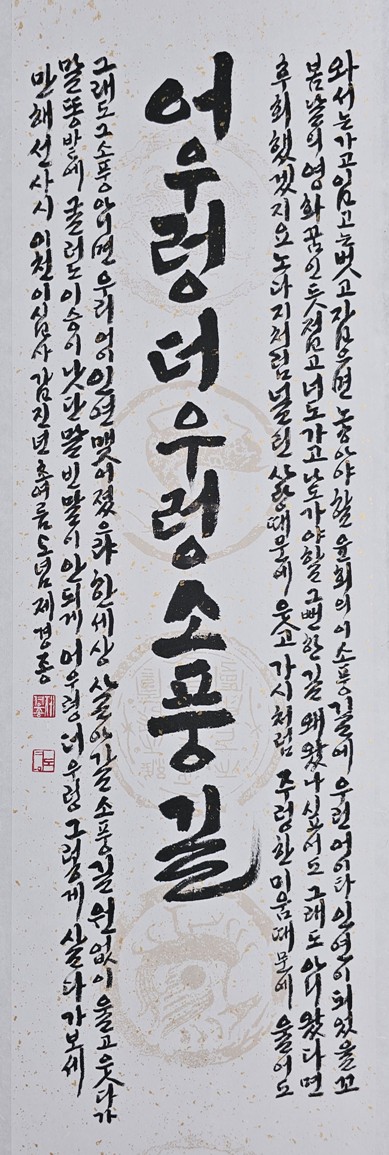 와서는 가고 입고는 벗고 잡으면 놓아야 할 윤회의 이 소풍길에 우린 어이타 인연이 되었을꼬
봄날의 영화 꿈인 듯 접고 너도 가고 나도 가야 할 그 뻔한 길 왜 왔나 싶어도 그래도 아니 왔다면
후회했겠지요 노다지처럼 널린 사랑 때문에 웃고 가시처럼 주렁한 미움 때문에 울어도
어우렁 더우렁 소풍길
그래도 그 소풍 아니면 우리 어이 인연 맺어졌으랴 한 세상 살아갈 소풍길 원없이 울고 웃다가
말똥밭에 굴러도 이승이 낫단 말 빈말이 안되게 어우렁 더우렁 그렇게 살다가 보세
만해선사 시 이천이십사 갑진년 초여름 도념 제경종